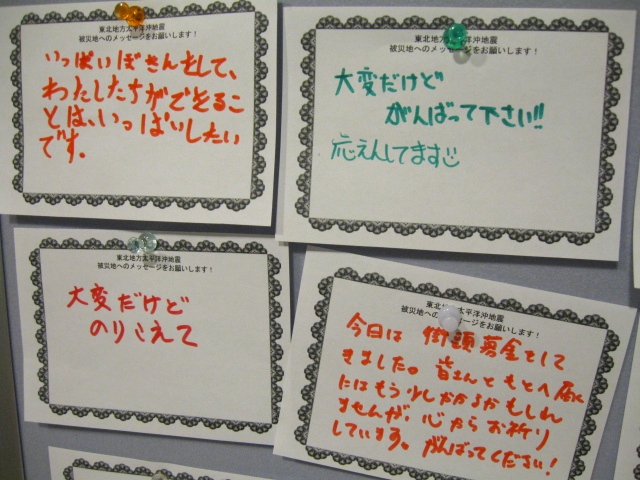 東北地方太平洋沖地震
被災地へのメッセージをお願いします！
いっぱいぼきんをして、
わたしたちができるこ
とは、いっぱいしたい
です。
東北地方太平洋沖地震
被災地へのメッセージをお願いします！
大変だけど
がんばって下さい!!
応えんしてます
東北地方太平洋沖地震
被災地へのメッセージをお願いします！
大変だけど
のりこえて
東北地方太平洋沖地震
被災地へのメッセージをお願いします！
今日は 街頭募金をして
きました。皆さんのもとへ届く
にはもう少しかかるかもしれ
ませんが、心からお祈り
しています。がんばってください！